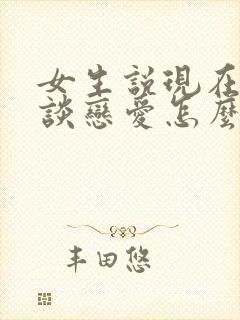 女生説現在
談戀愛怎麼
丰田悠